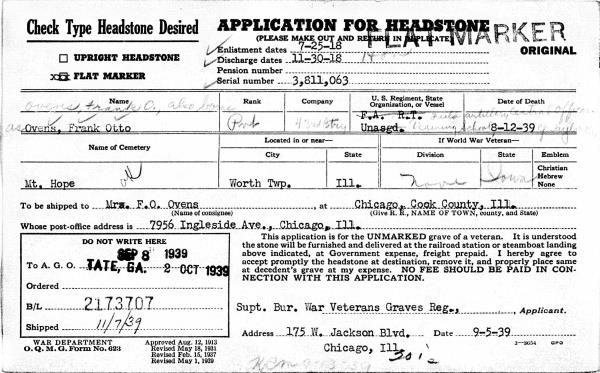 Check Type Headstone Desired
APPLICATION FOR HEADSTONE
(PLEASE MAKE OUT AND RETURN IN DUPLICATE)
FLAT MARKER
ORIGINAL
UPRIGHT HEADSTONE
FLAT MARKER
Enlistment dates 7-25-18
Discharge dates 11-30-18
Pension number
Serial number 3,811,063
Name
Rank
Company
U. S. Regiment, State Organization, or Vessel
Date of Death
Ovens, Frank O., also borne
as
Ovens, Frank Otto
Pvt
F.A. R.T.
Unasgd.
8-12-39
Name of Cemetery
Located in or near—
City
State
If World War Veteran—
Division
State
Emblem
Christian
Hebrew
None
Mt. Hope
Worth Twp.
Ill.
None
Iowa
To be shipped to Mrs. F.O. Ovens at Chicago, Cook County, Ill.
(Name of consignee)
(Give R. R., NAME OF TOWN, county, and State)
Whose post-office address is 7956 Ingleside Ave., Chicago, Ill.
DO NOT WRITE HERE
SEP 8 1939
To A. G. O.
TATE, GA. 2 OCT 1939
Ordered
B/L 2173707
Shipped 11/7/39
This application is for the UNMARKED grave of a veteran. It is understood
the stone will be furnished and delivered at the railroad station or steamboat landing
above indicated, at Government expense, freight prepaid. I hereby agree to
accept promptly the headstone at destination, remove it, and properly place same
at decedent's grave at my expense. NO FEE SHOULD BE PAID IN CON-
NECTION WITH THIS APPLICATION.
Supt. Bur. War Veterans Graves Reg., Applicant.
Address 175 W. Jackson Blvd. Date 9-5-39
Chicago, Ill.
WAR DEPARTMENT
O. Q. M. G. Form No. 623
Approved Aug. 12, 1913
Revised May 18, 1931
Revised Feb. 15, 1937
Revised May 1, 1939
3—9654 GPO